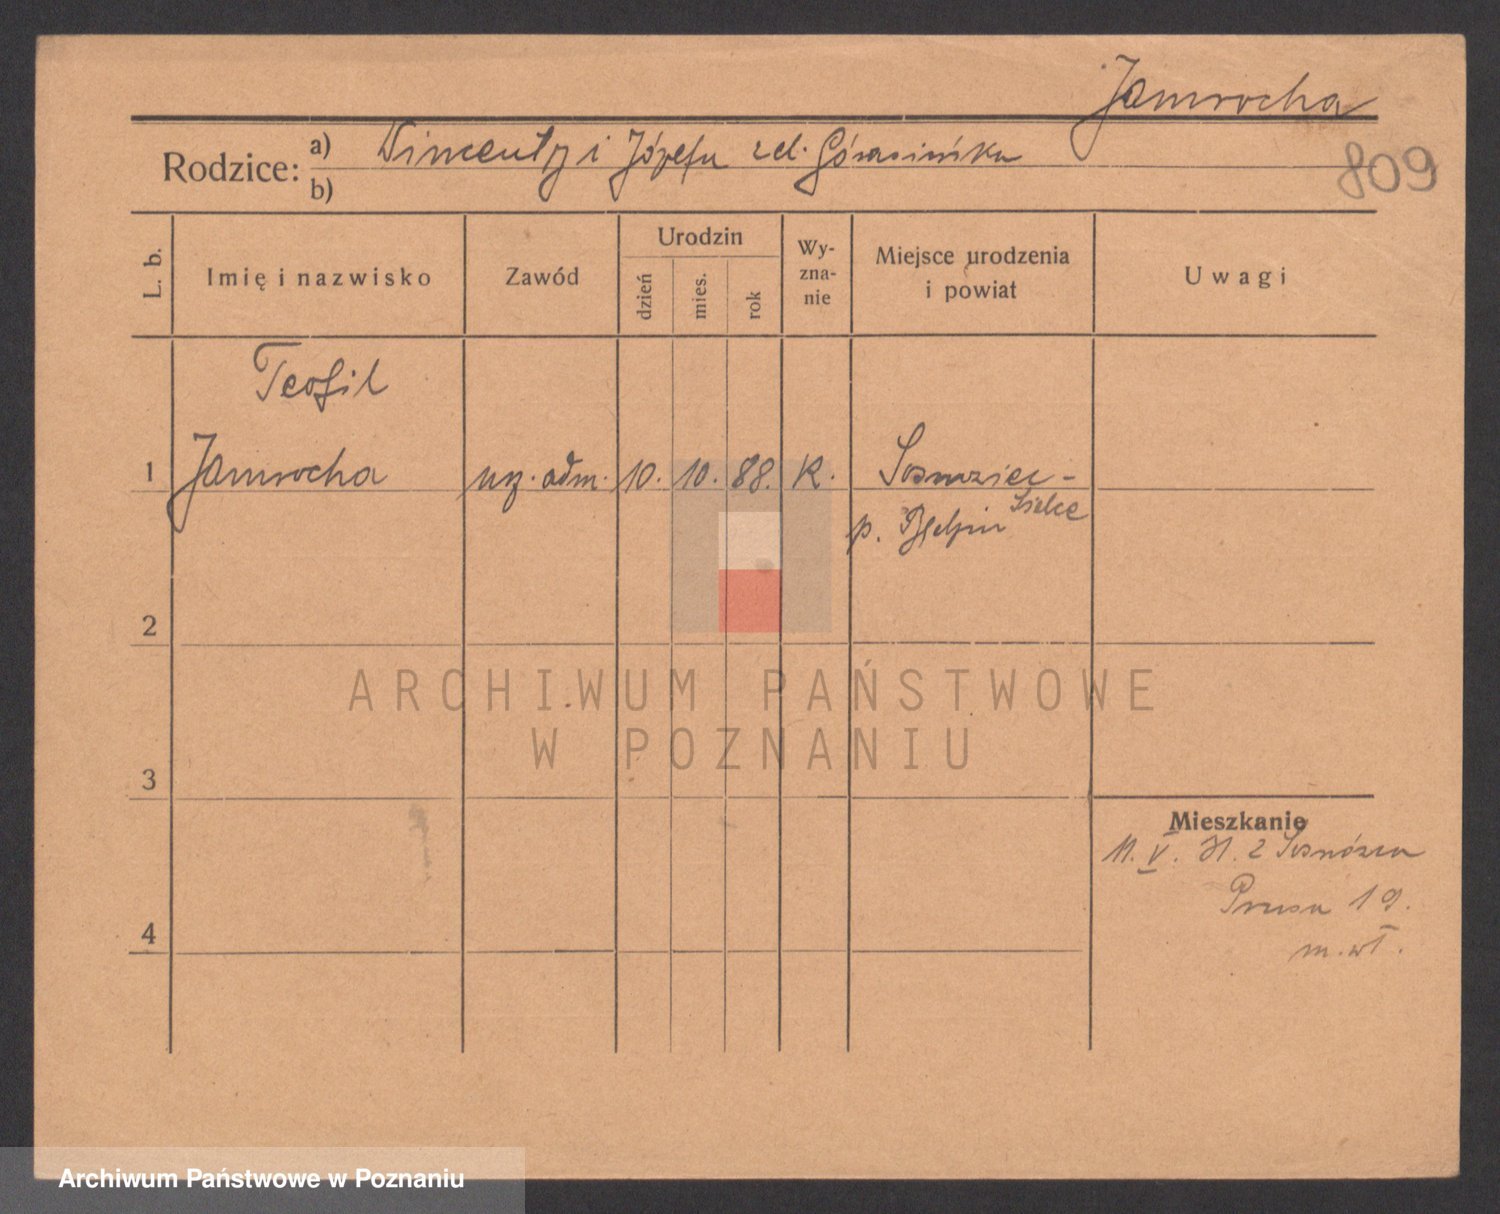 Jamrocha
809
Rodzice: a) Wincenty i Józefa zd.
b)
L. b.
Imię i nazwisko
Zawód
Urodzin
dzień
mies.
rok
Wy-
zna-
nie
Miejsce urodzenia
i powiat
Uwagi
Teofil
1 Jamrocha urz. adm. 10. 10. 88. K. Sosnowiec -
Sielce
p. Będzin
2
ARCHIWUM PAŃSTWOWE
W POZNANIU
3
Mieszkanie
11. V. 31. z Sosnowca
Prusa 19.
m. wł.
4
Archiwum Państwowe w Poznaniu